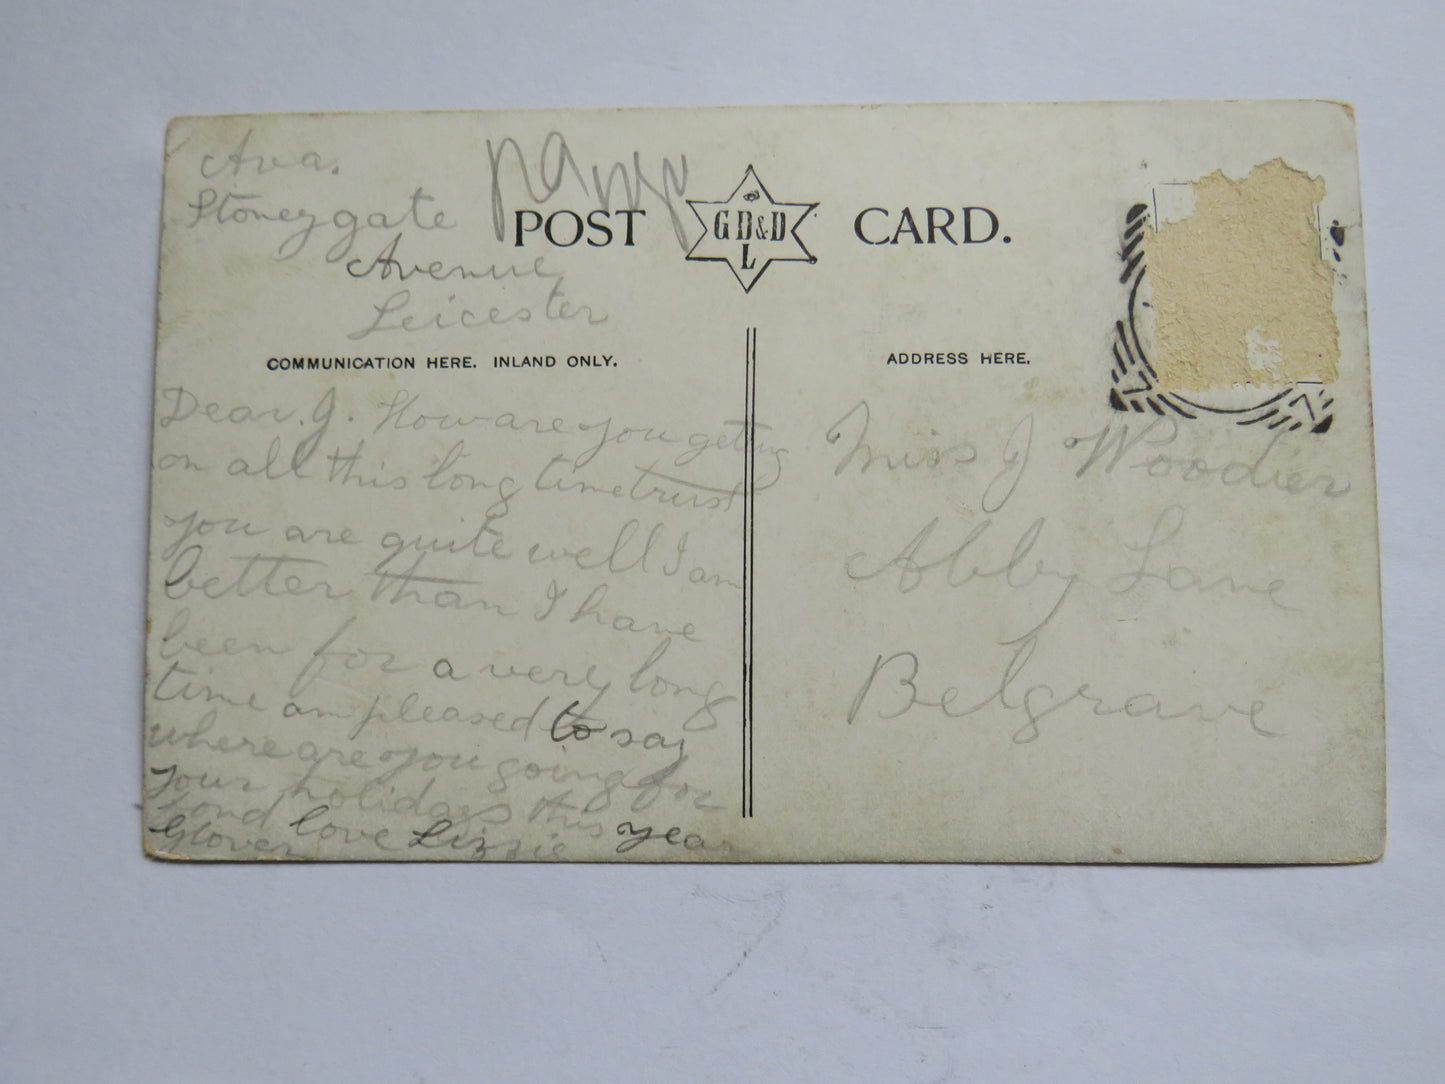 Ava.
Stoneygate
Avenue
Leicester
POST CARD.
G D&D
L
COMMUNICATION HERE. INLAND ONLY.
ADDRESS HERE.
Dear. J. How are you getting
on all this long time trust
you are quite well I am
better than I have
been for a very long
time am pleased to say
where are you going for
your holidays this year
fond love Lizzie
Glover
Miss J Woodier
Abby Lane
Belgrave